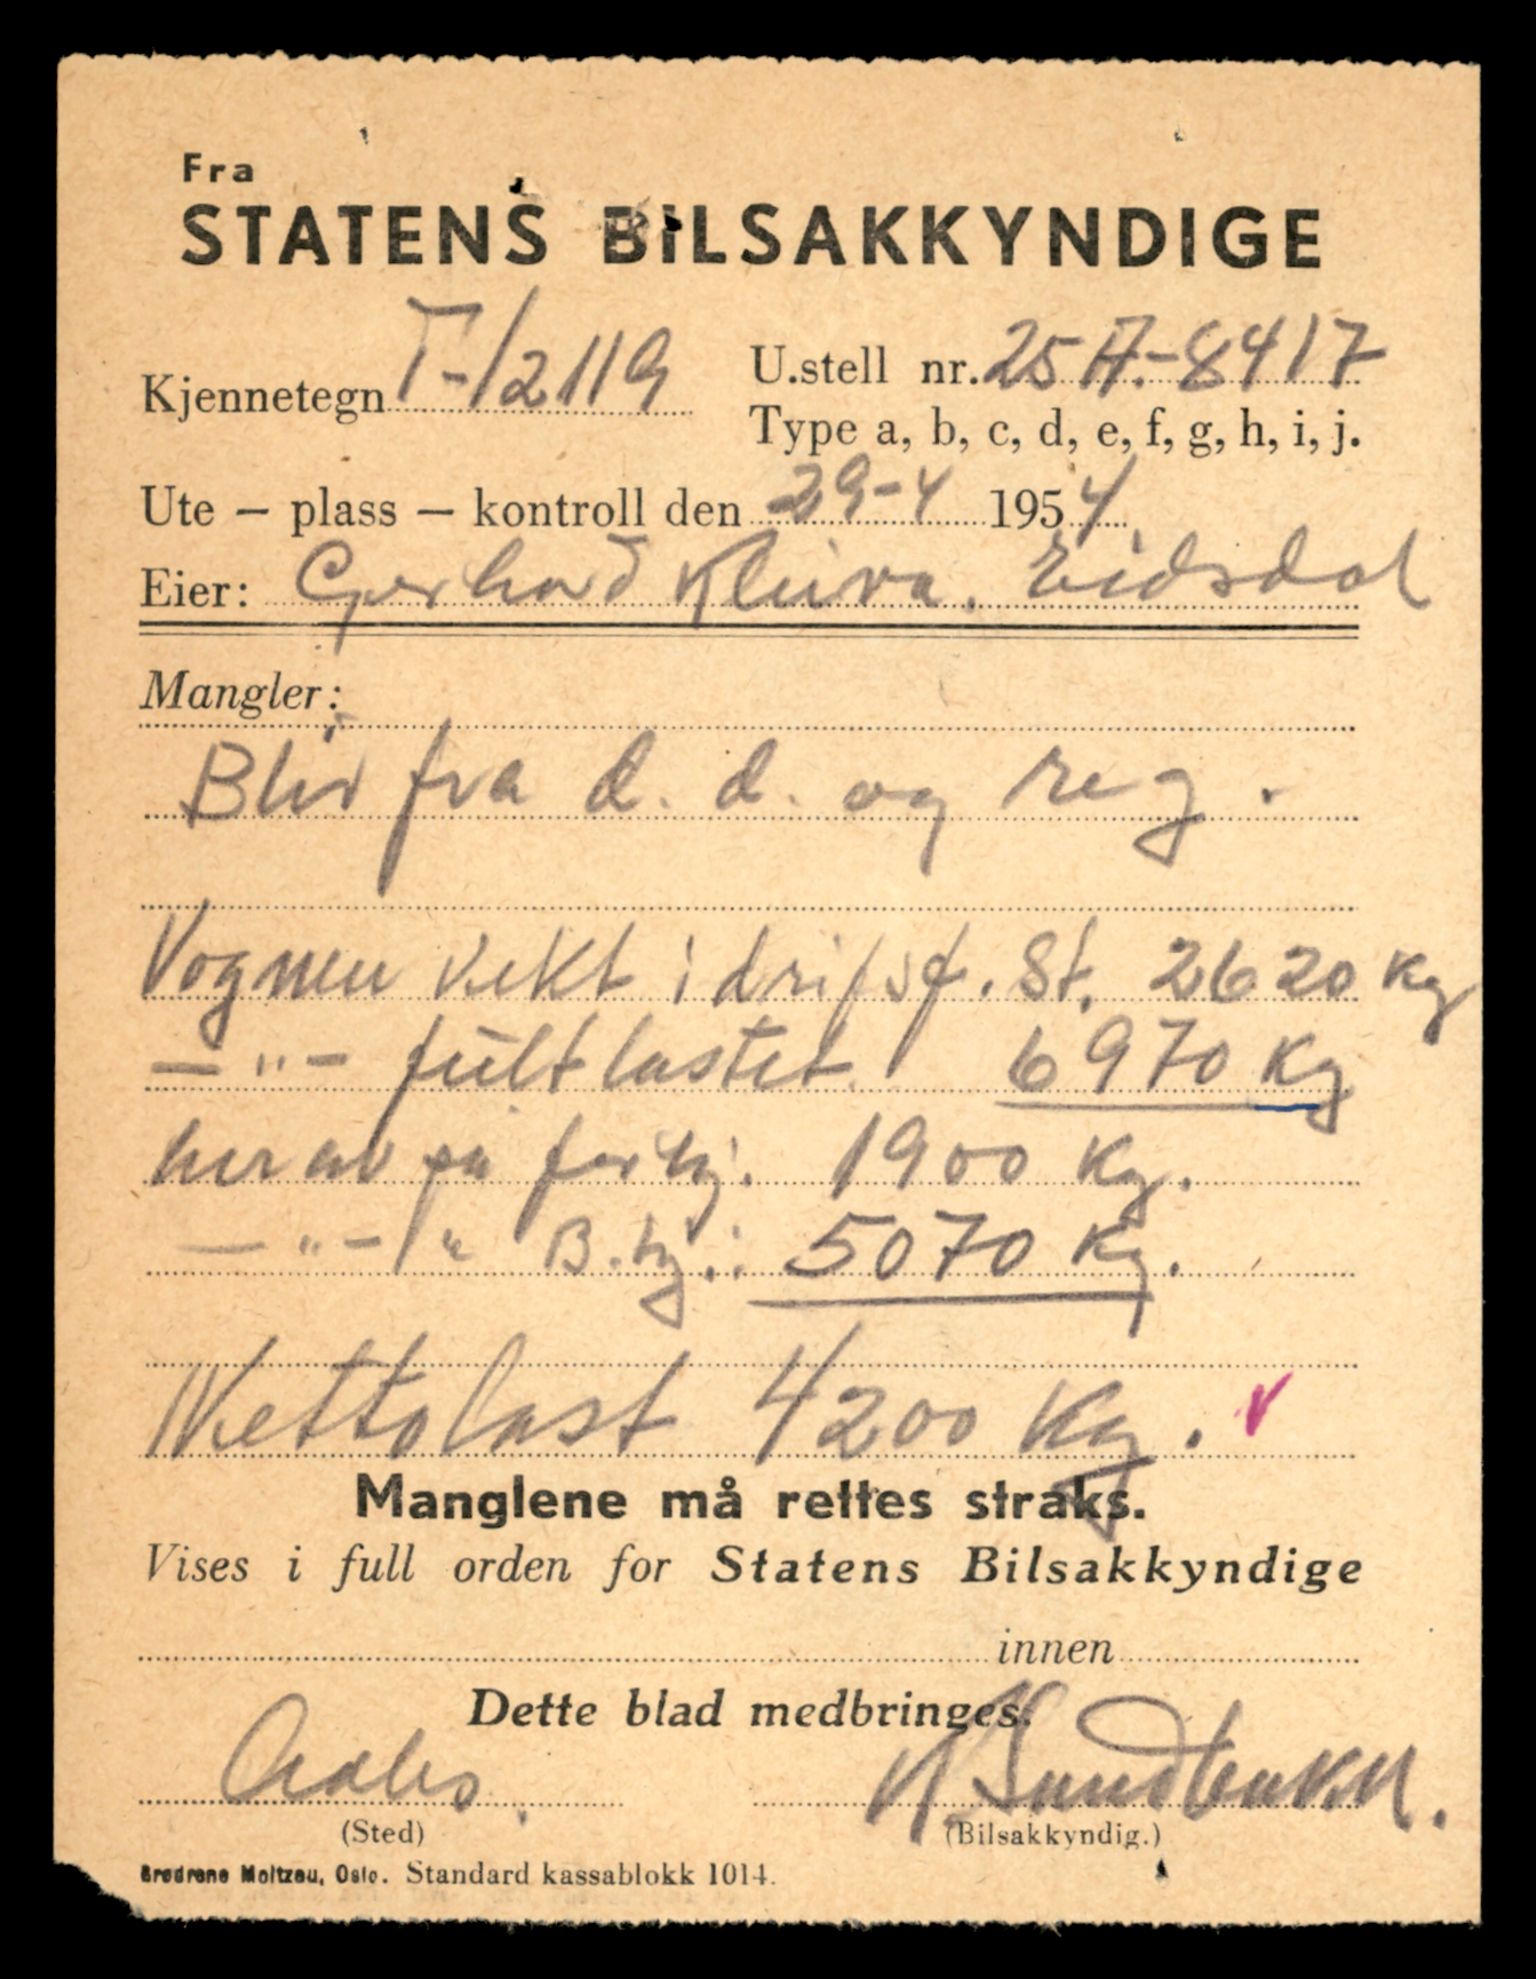 Fra
STATENS BILSAKKYNDIGE
Kjennetegn T-12119
U.stell nr. 25A-8417
Type a, b, c, d, e, f, g, h, i, j.
Ute – plass – kontroll den 29-4 1954
Eier: Gerhard Kleiva. Eidsdal
Mangler:
Blir fra d. d. og reg.
Vognen vekt i drifsf. St. 2620 kg
— " — fullt lastet. 6970 kg
herav på forhj. 1900 kg.
— " — " B.hj.: 5070 kg.
Nettolast 4200 kg. v
Manglene må rettes straks.
Vises i full orden for Statens Bilsakkyndige
innen
Dette blad medbringes.
(Sted)
(Bilsakkyndig.)
Brødrene Moltzau, Oslo. Standard kassablokk 1014.